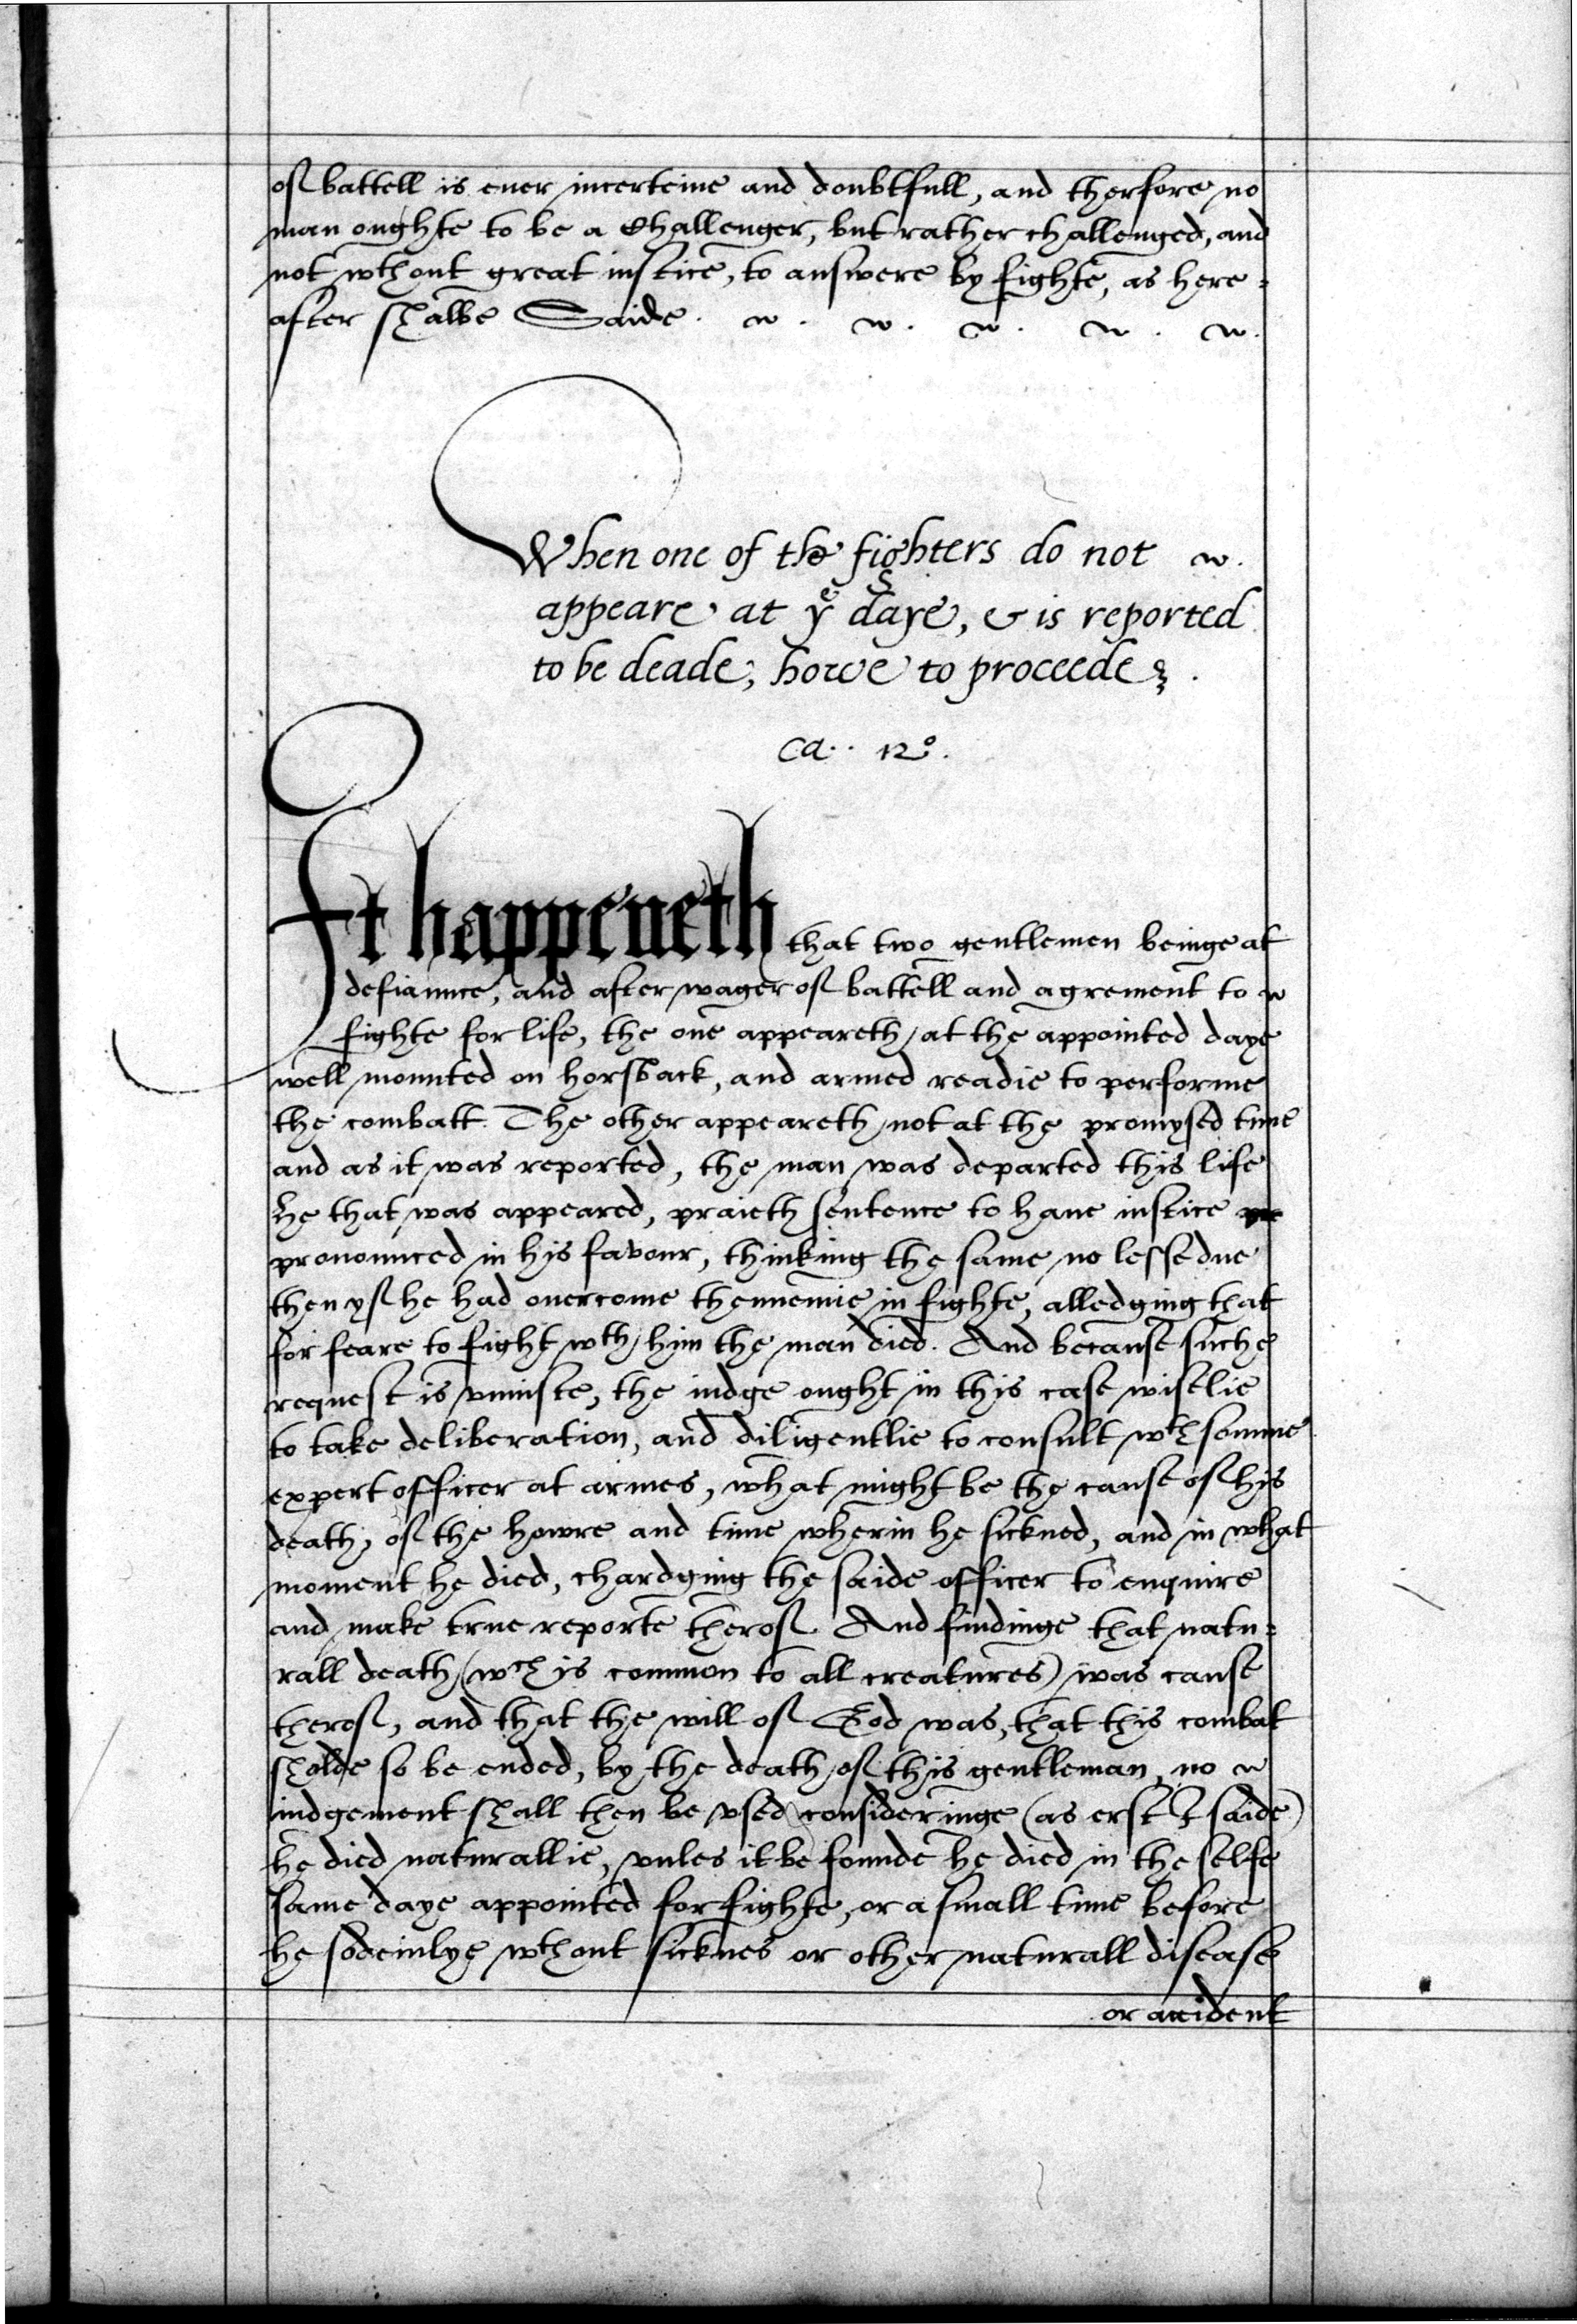 of battell is euer incerteine and doubtfull, and therfore no
man oughte to be a Challenger, but rather challenged, and
not wthout great iustice, to answere by fighte, as here=
after shalbe Saide.
When one of the fighters do not
appeare at ye daye, & is reported
to be deade, howe to proceede.
Ca.. 12o.
It happeneth that two gentlemen beinge at
defiaunce, and after wager of battell and agrement to
fighte for life, the one appeareth at the appointed daye
well mounted on horsback, and armed readie to performe
the combatt. The other appeareth not at the promysed time
and as it was reported, the man was departed this life
he that was appeared, praieth sentence to haue iustice
pronounced in his favour, thinking the same no lesse due
then yf he had ouercome thennemie in fighte, alledging that
for feare to fight wth him the man died. And becaused suche
request is vniuste, the iudge ought in this case wiselie
to take deliberation, and diligentlie to consult wth somme
expert officer at armes, what might be the cause of his
death, of the howre and time wherin he sickned, and in what
moment he died, chardging the saide officer to enquire
and make true reporte therof. And findinge that natu=
rall death (wch is common to all creatures) was cause
therof, and that the will of God was, that this combat
sholde so be ended, by the death of this gentleman, no
iudgement shall then be vsed consideringe (as erst I saide)
he died naturallie, vnles it be founde he died in the selfe
same daye appointed for fighte, or a small time before
he sodeinlye wthout sicknes or other naturall disease
or accident